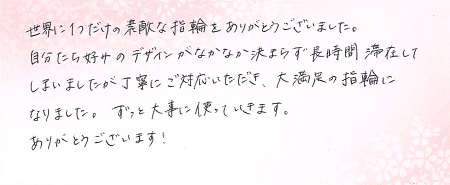 世界に1つだけの素敵な指輪をありがとうございました。
自分たち好みのデザインがなかなか決まらず長時間滞在して
しまいましたが丁寧にご対応いただき、大満足の指輪に
なりました。ずっと大事に使っていきます。
ありがとうございます!